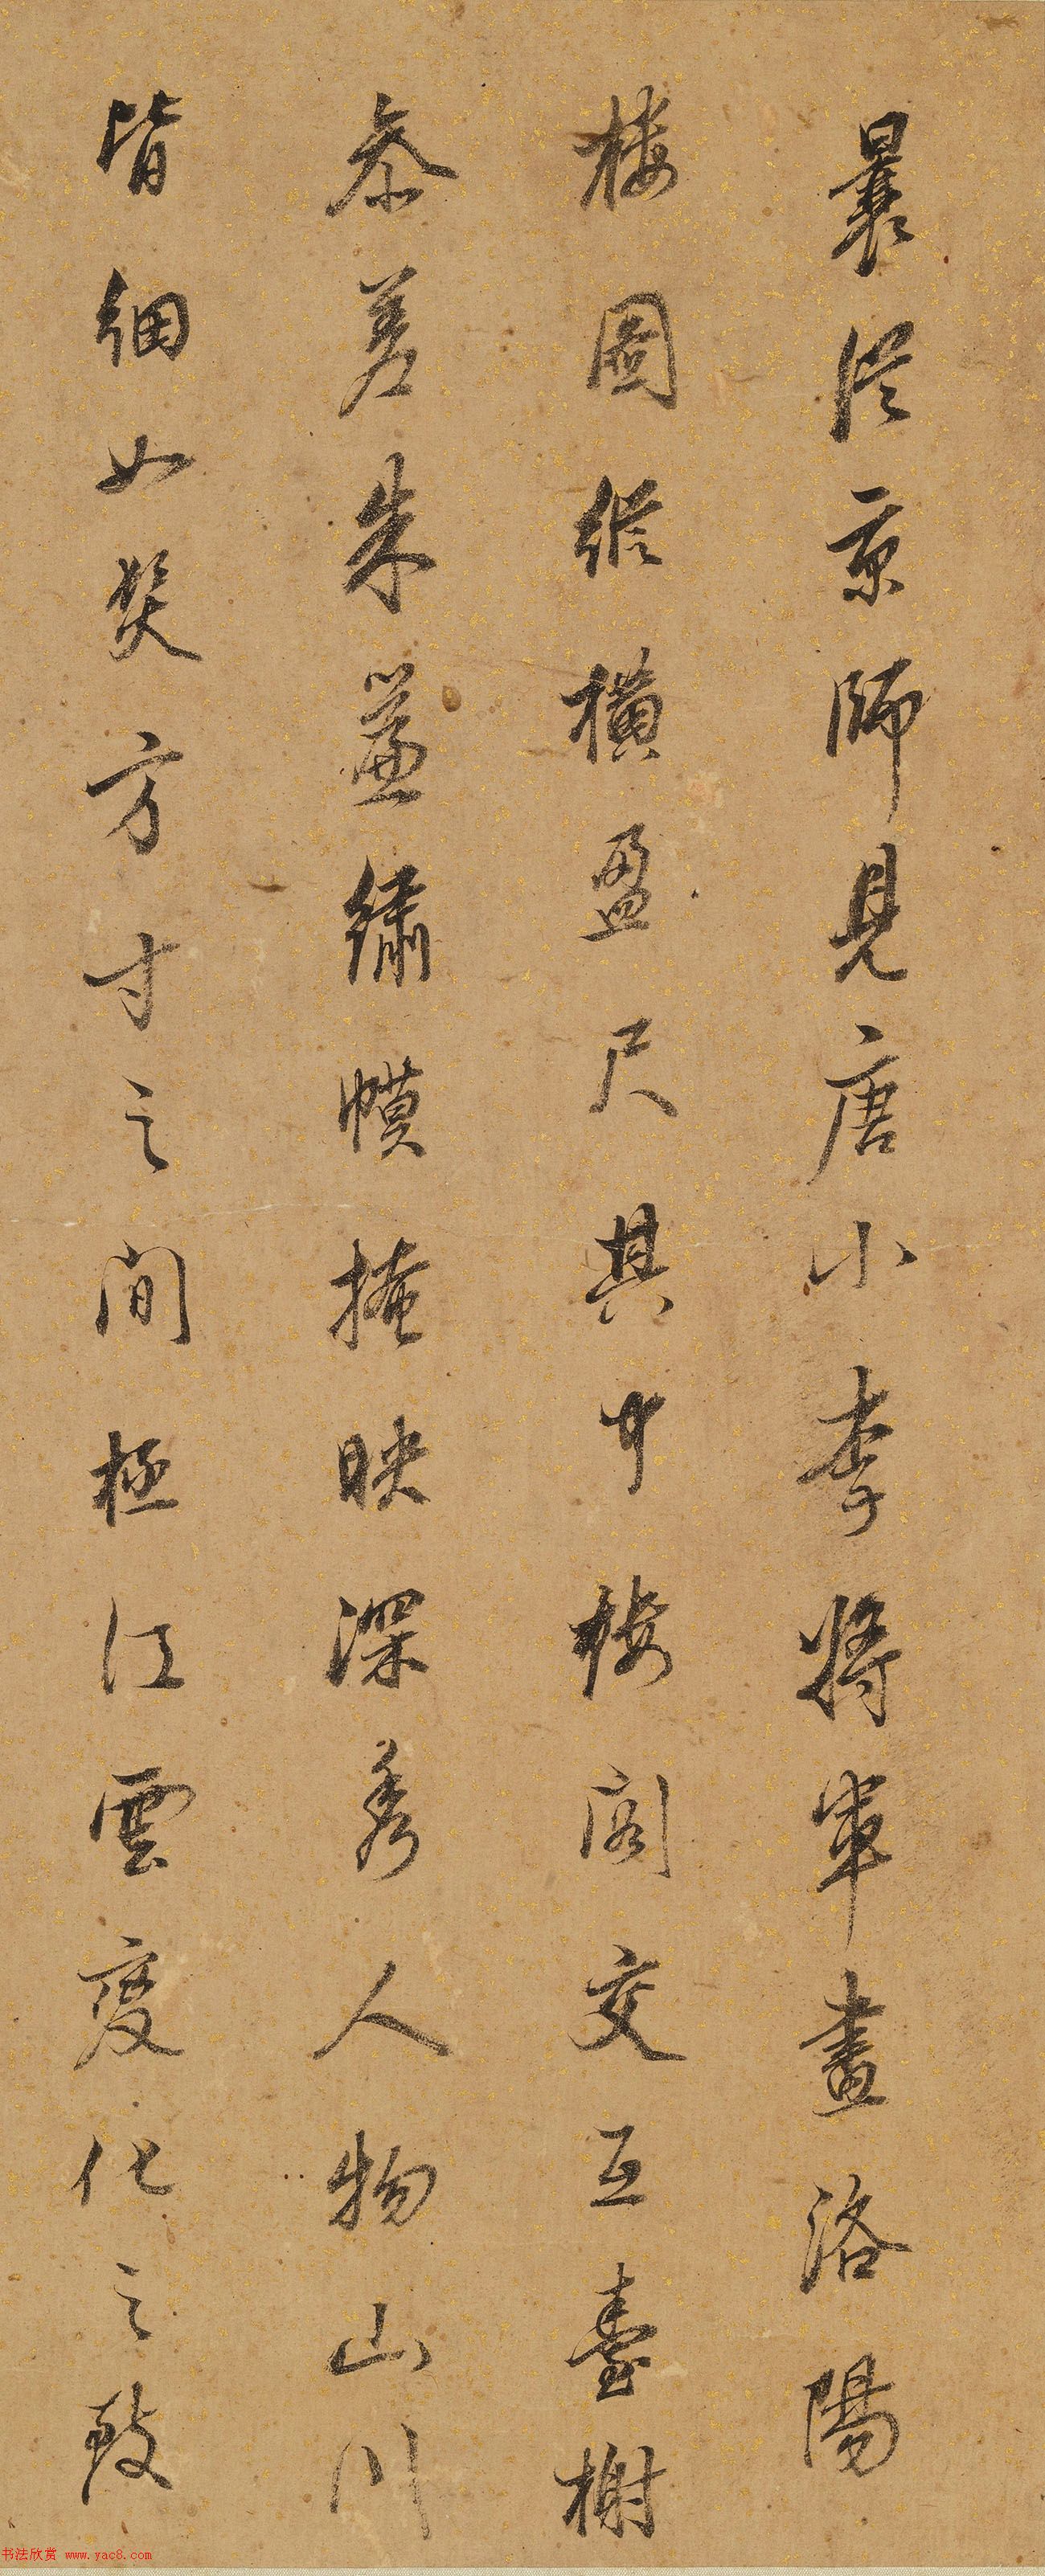 曩從京師見唐小李將軍畫洛陽
樓圖縱橫盈尺其中樓閣交互臺榭
叅差朱簾繡幙掩映深秀人物山川
皆細如髮方寸之間極江雲變化之致
书法欣赏 www.yac8.com